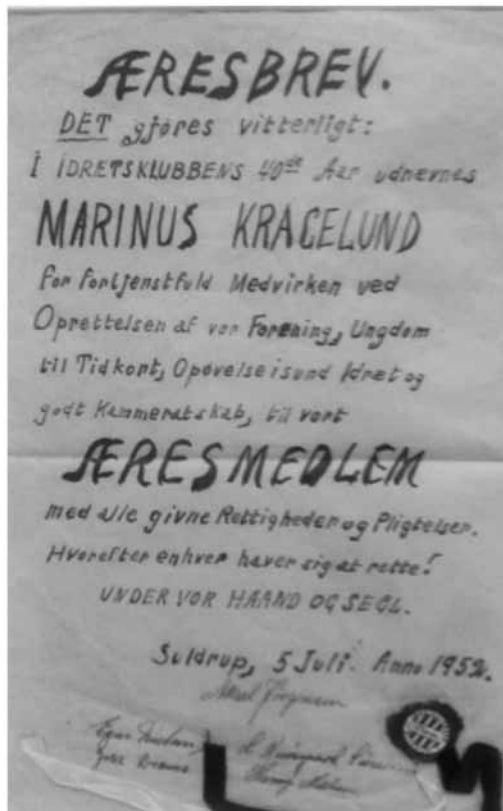 ÆRESBREV.
DET gjøres vitterligt:
I IDRETSKLUBBENS 40de Aar udnævnes
MARINUS KRAGELUND
for fortjenstfuld Medvirken ved
Oprettelsen af vor Forening, Ungdom
til Tidkort, Opøvelse i sund Idræt og
godt Kammeratskab, til vort
ÆRESMEDLEM
med alle givne Rettigheder og Pligtelser.
Hvorefter enhver haver sig at rette!
UNDER VOR HAAND OG SEGL.
Suldrup, 5 Juli. Anno 1952.